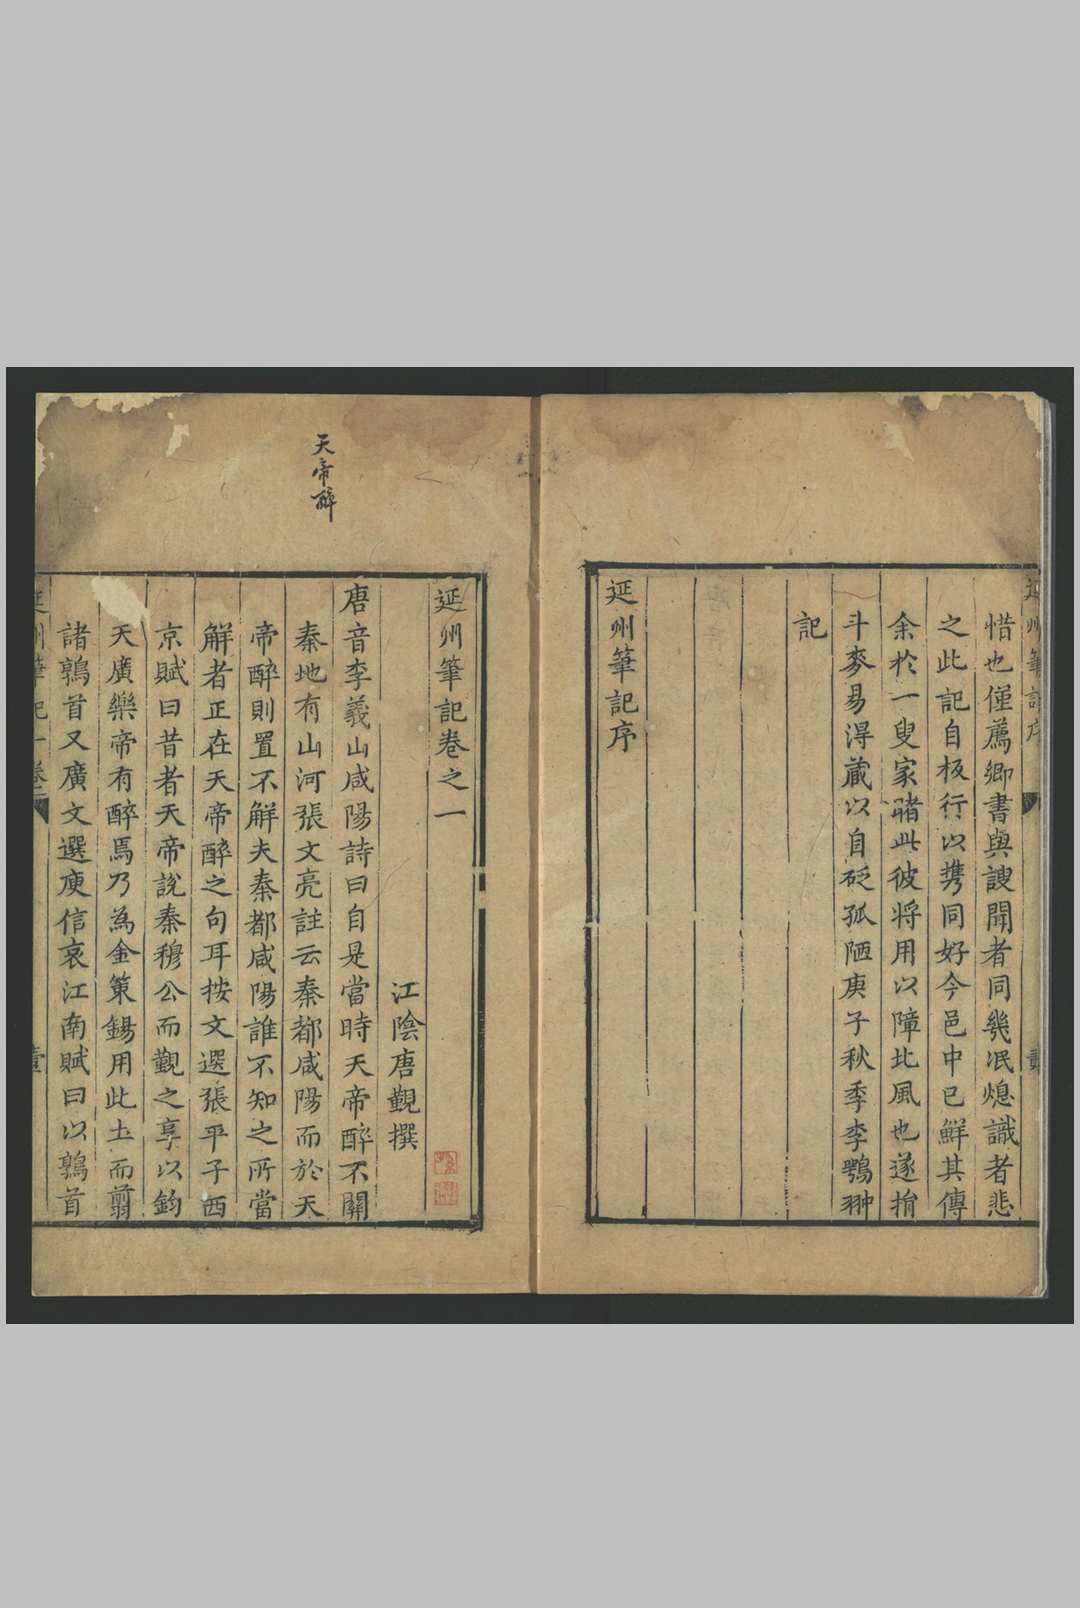 延州筆記序
惜也僅薦卿書與謏聞者同幾泯熄識者悲
之此記自板行以携同好今邑中已鮮其傳
余於一叟家睹此彼将用以障北風也遂捐
斗麥易淂蔵以自砭孤陋庚子秋季李鶚翀
記
延州筆記序
天帝醉
延州筆記卷之一
江陰唐觀撰
唐音李義山咸陽詩曰自是當時天帝醉不關
秦地有山河張文亮註云秦都咸陽而於天
帝醉則置不解夫秦都咸陽誰不知之所當
解者正在天帝醉之句耳按文選張平子西
京賦曰昔者天帝說秦穆公而觀之享以鈞
天廣樂帝有醉焉乃為金策錫用此土而翦
諸鶉首又廣文選庾信哀江南賦曰以鶉首
延州筆記一卷 壹